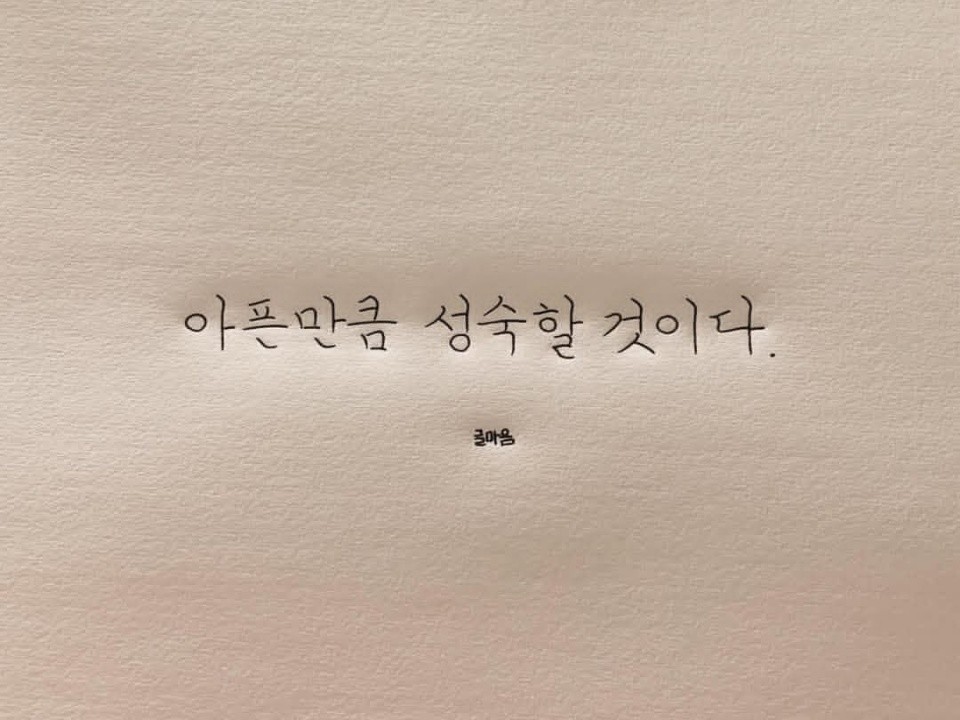 아픈만큼 성숙할 것이다.
글마음